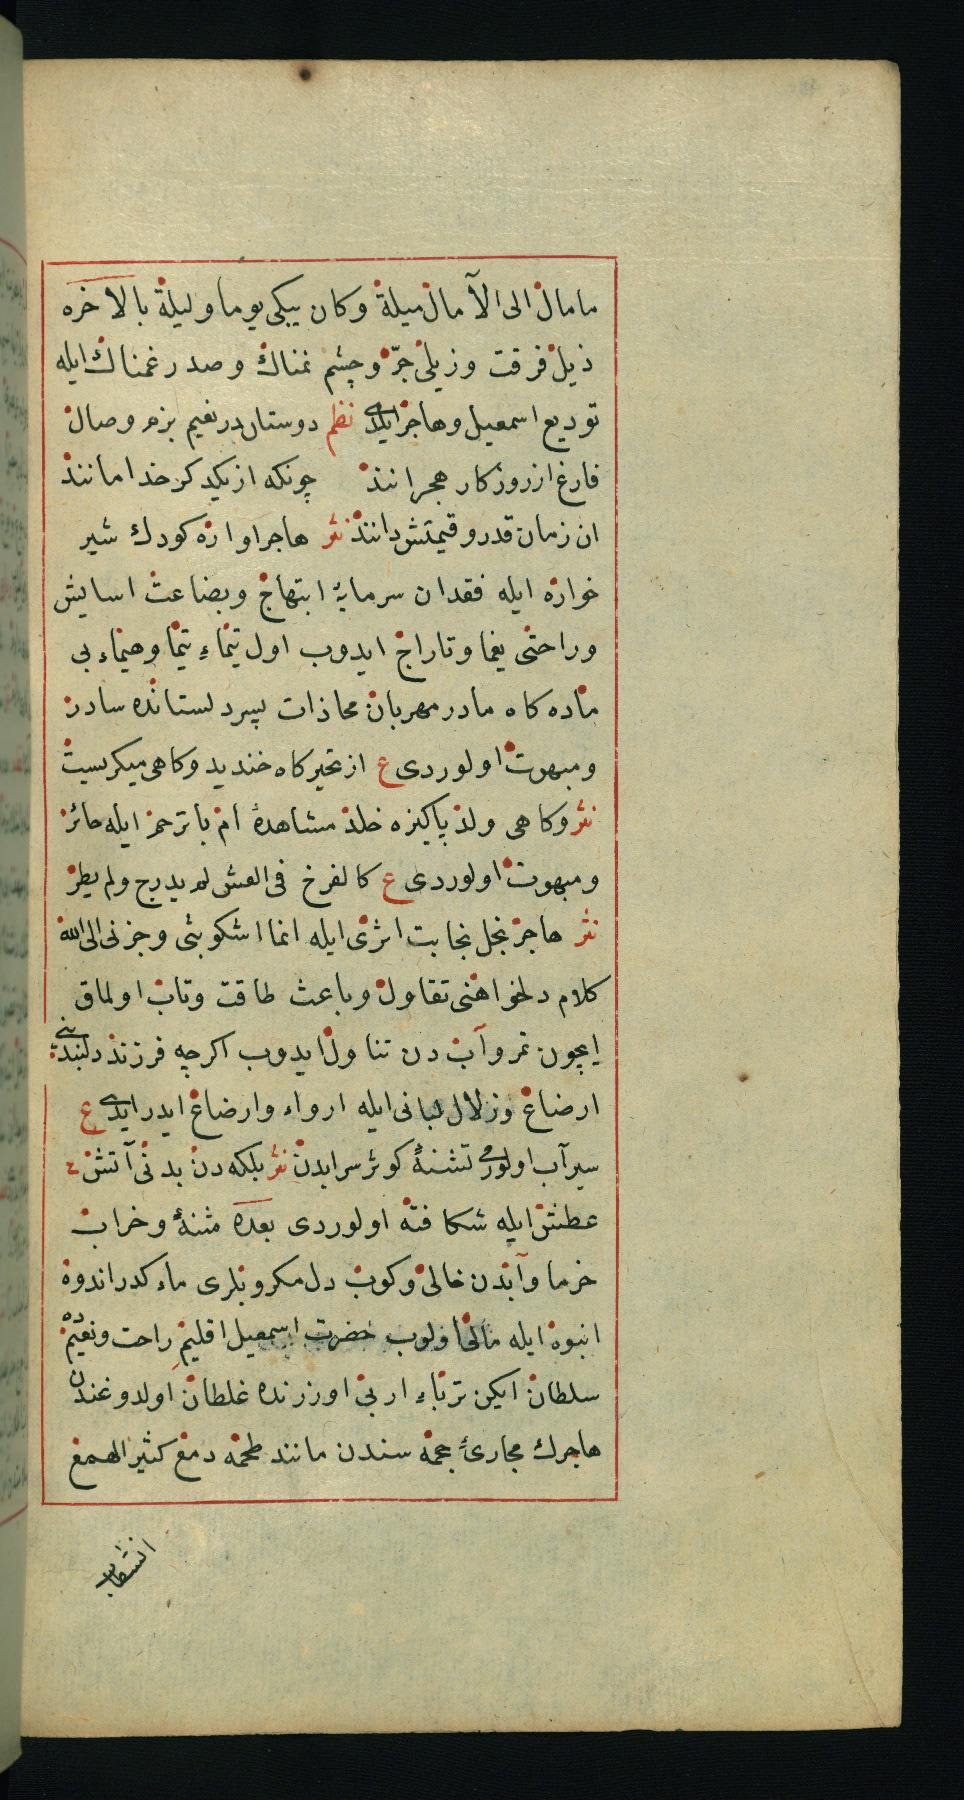 ما مال الى الآمال ميلة وكان يبكى يوما وليلة بالاخره
ذيل فرقت وزيلى جرّ وچشم نمناك وصدر غمناك ايله
توديع اسمعيل وهاجر ايلدى نظم دوستان در نعيم بزم وصال
فارغ از روزكار هجرانند چونكه از يكدكر خدا مانند
ان زمان قدر وقيمتش دانند نثر هاجر اواره كودك شير
خواره ايله فقدان سرمايۀ ابتهاج وبضاعت اسايش
وراحتى يغما وتاراج ايدوب اول تيماءِ تيما وهيماء بى
ماده كاه مادر مهربان محاذات پسر دلستانده سادر
ومبهوت اولوردى ع از تحير كاه خنديد وكاهى ميكريست
نثر وكاهى ولد پاكيزه خلد مشاهدۀ ام با ترحم ايله حائر
ومبهوت اولوردى ع كالفرخ فى العش لم يدرج ولم يطر
نثر هاجر نجل نجابت اثرى ايله انما اشكو بثى وحزنى الى الله
كلام دلخواهنى تقاول وباعث طاقت وتاب اولماق
ايچون تمر وآب دن تناول ايدوب اكرچه فرزند دلبندينى
ارضاع وزلال لبانى ايله ارواء وارضاع ايدر ايدى ع
سيرآب اولورمى تشنۀ كوثر سرابدن نثر بلكه دن بدنى آتش
عطش ايله شكافته اولوردى بعده مثنۀ وخراب
خرما وآبدن خالى وكوب دل مكروبلرى ماء كدر اندوه
انبوه ايله مالى اولوب حضرت اسمعيل اقليمِ راحت ونعيمده
سلطان ايكن ترباء اربى اوزرنده غلطان اولدوغندن
هاجرك مجارىٔ جحمه سندن مانند طحمه دمع كثير الهمع
انشعاب